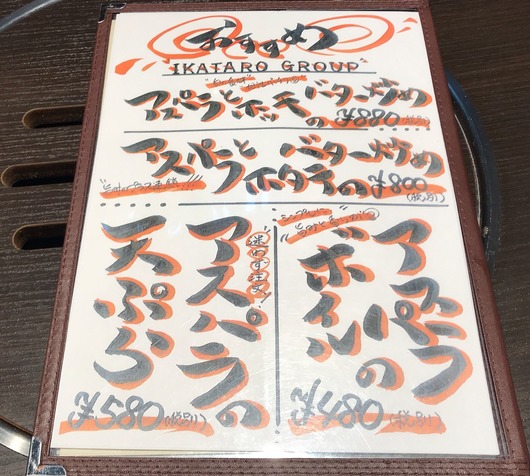 おすすめ
IKATARO GROUP
アスパラとホッキの
バター炒め
¥880(税別)
アスパラとホタテの
バター炒め
¥800
(税別)
アスパラの
ボイル
¥480(税別)
迷わず注文!
アスパラの
天ぷら
¥580(税別)